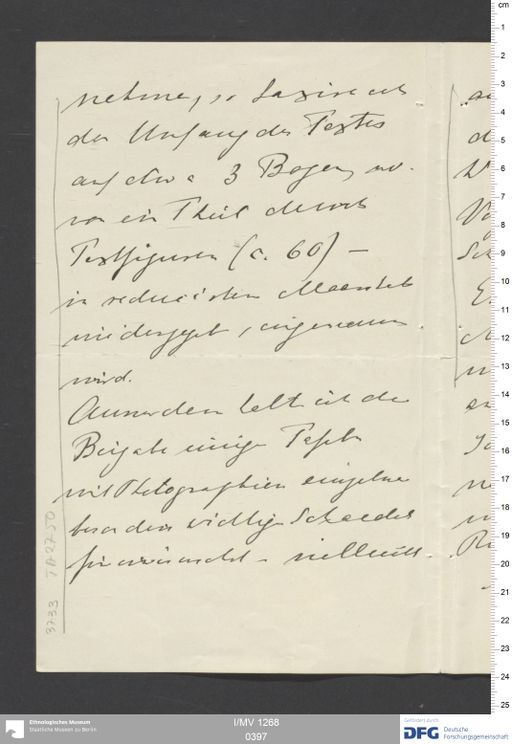 nehme, so taxire ich
den Umfang des Textes
auf etwa 3 Bogen, wo-
von ein Theil durch
Textfiguren (c. 60) –
in reducirtem Maasstab
niedergegeb, eingenommen
wird.
Ausserdem halte ich die
Beigabe einiger Tafeln
mit Photographien einzelner
besonders wichtiger Schaedel
für erwünscht – vielleicht
3733 TA2750
cm
1
2
3
4
5
6
7
8
9
10
11
12
13
14
15
16
17
18
19
20
21
22
23
24
25
Ethnologisches Museum
Staatliche Museen zu Berlin
I/MV 1268
0397
Gefördert durch
DFG Deutsche
Forschungsgemeinschaft